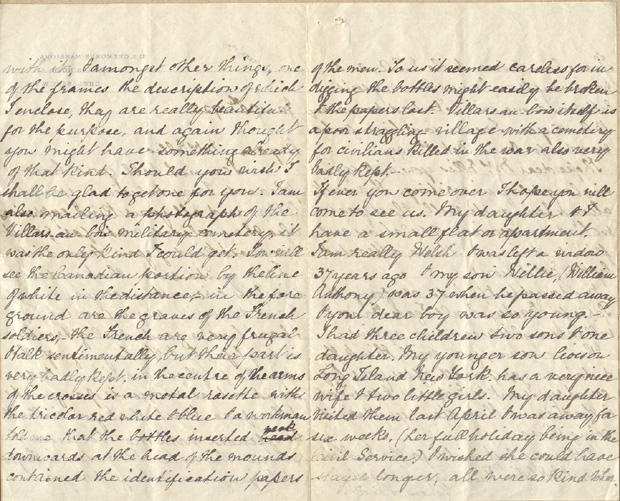 with it, & amongst other things, one
of the frames the description of which
I enclose, they are really beautiful
for the purpose, and again thought
you might have something already
of that kind. Should you wish I
shall be glad to get one for you. I am
also mailing a photograph of the
Villars au bois military cemetery, it
was the only kind I could get. You will
see the Canadian portion by the line
of white in the distance, in the fore
ground are the graves of the French
soldiers, the French are very frugal
& talk sentimentally, but their part is
very badly kept, in the centre of the arms
of the crosses is a metal rosette with
the tricolor red white & blue & a workman
told me that the bottles inserted neck
downwards at the head of the mounds
contained the identification papers
of the men. To us it seemed careless for in
digging the bottles might easily be broken
& the papers lost. Villars au bois itself is
a poor straggling village with a cemetery
for civilians killed in the war also very
badly kept.
If ever you come over I hope you will
come to see us. My daughter & I
have a small flat or apartment.
I am really Welsh & was left a widow
37 years ago & my son Willie, (William
Anthony) was 37 when he passed away
& your dear boy was so young.
I had three children two sons & one
daughter. My younger son is on
Long Island New York, has a very nice
wife & two little girls. My daughter
visited them last April & was away for
six weeks, (her full holiday being in the
Civil Service.) I wished she could have
stayed longer, all were so kind when